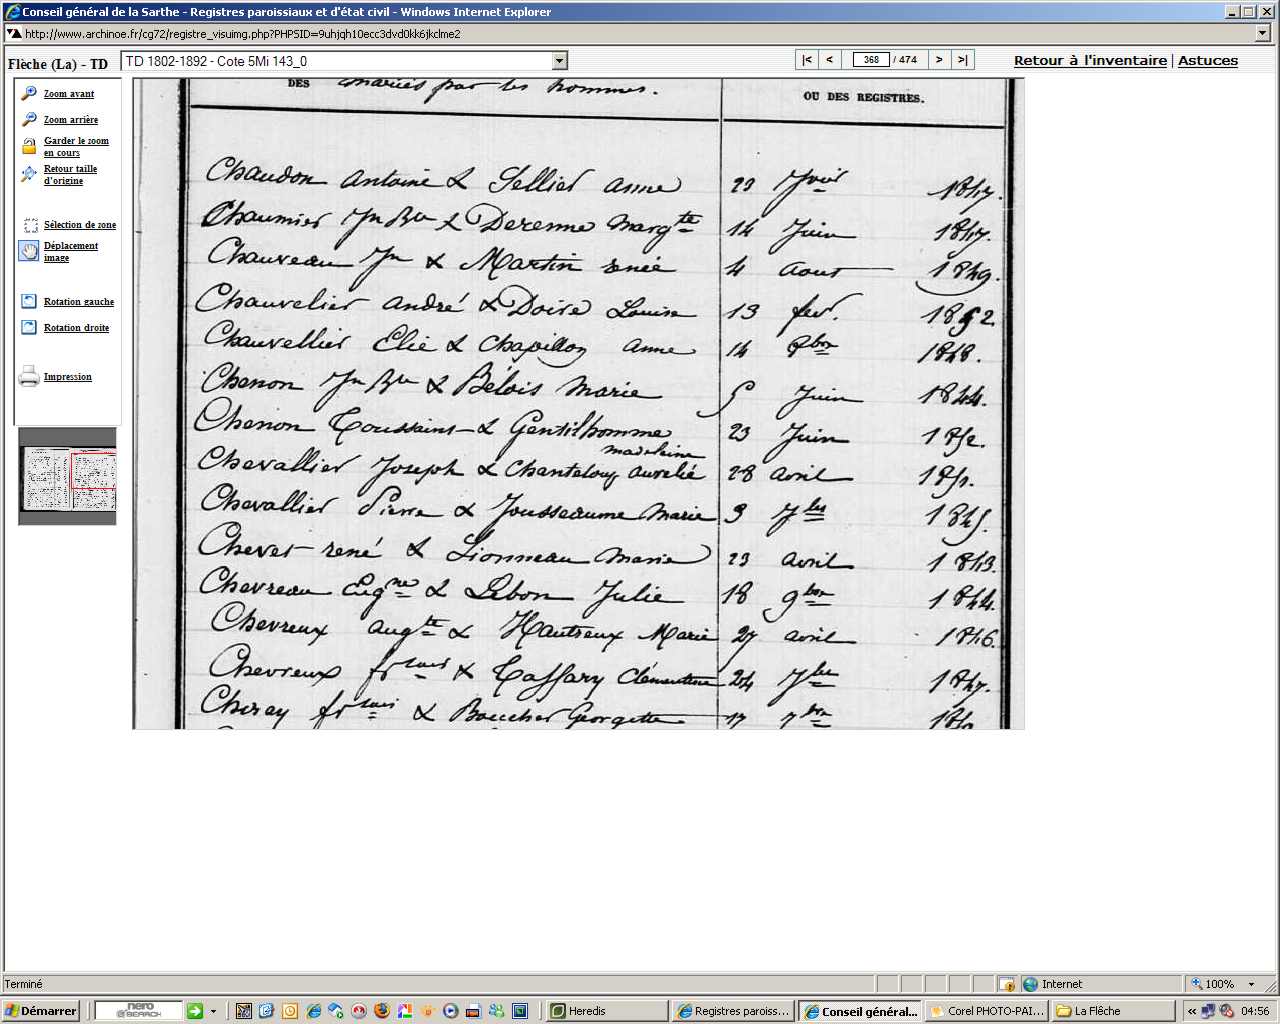 Conseil général de la Sarthe - Registres paroissiaux et d'état civil - Windows Internet Explorer
http://www.archinoe.fr/cg72/registre_visuimg.php?PHPSID=9uhjqh10ecc3dvd0kk6jkclme2
Flèche (La) - TD
TD 1802-1892 - Cote 5Mi 143_0
|< < 368 / 474 > >|
Retour à l'inventaire | Astuces
Zoom avant
Zoom arrière
Garder le zoom
en cours
Retour taille
d'origine
Sélection de zone
Déplacement
image
Rotation gauche
Rotation droite
Impression
DES mariés par les hommes.
OU DES REGISTRES.
Chaudon Antoine & Sellier anne 23 Jvier 1847.
Chaumier Jn Bte & Derenne Margte 14 Juin 1847.
Chauveau Jn & Martin renée 4 aout 1849.
Chauvelier andré & Doire Louise 13 fevr. 1852.
Chauvellier Elie & Chapillon anne 14 1848.
Chenon Jn Bte & Bélois Marie 5 Juin 1844.
Chenon Toussaint & Gentilhomme 23 Juin 1852.
madeleine
Chevallier Joseph & Chantelou aurelie 28 avril 1851.
Chevallier Pierre & Jousseaume Marie 9 7bre 1845.
Chevet rené & Lionneau marie 23 avril 1843.
Chevreau Eugne & Lebon Julie 18 9bre 1844.
Chevreux augte & Hautreux Marie 27 avril 1846.
Chevreux frçois & Taffary Clémentine 24 7bre 1847.
frçois & Boucher Georgette 17 7bre
Terminé
Internet
100%
Démarrer
nero
SEARCH
Heredis
Registres paroiss...
Conseil général...
Corel PHOTO-PAI...
La Flêche
04:56